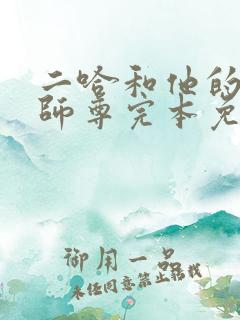 二哈和他的
師尊完本免
御用一品
未经同意禁止转载